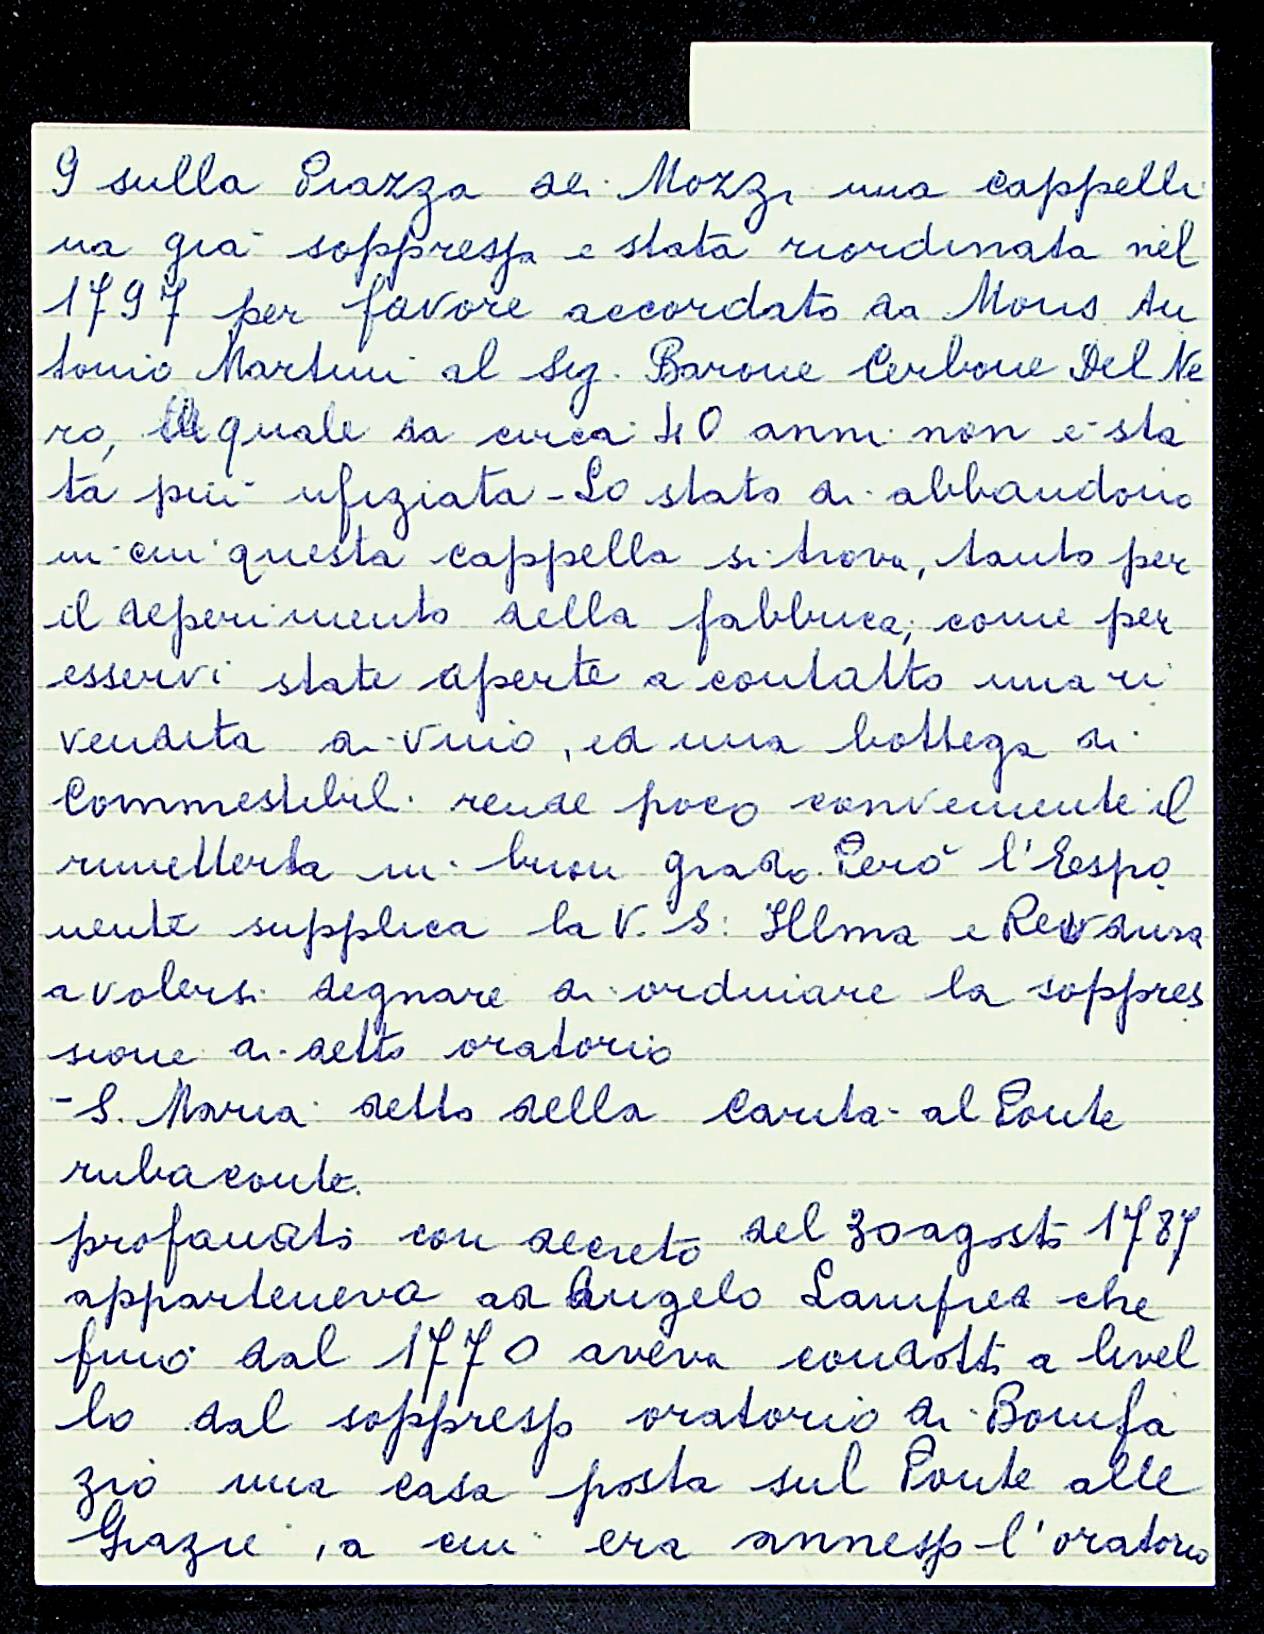 9 sulla Piazza dei Mozzi una cappelli
na già soppressa e stata riordinata nel
1797 per favore accordato da Mons An
tonio Martini al Sig. Barone Cerbone Del Ne
ro, quale da circa 40 anni non è sta
ta più ufiziata - Lo stato di abbandono
in cui questa cappella si trova, tanto per
il deperimento della fabbrica, come per
esservi state aperte a contatto una ri
vendita di vino, ed una bottega di
Commestibili rende poco conveniente il
rimetterla in buon grado. Però l'Espo
nente supplica la V. S: Illma e Revdma
a volersi degnare di ordinare la soppres
sione di detto oratorio
- S. Maria detto della Carità al Ponte
rubaconte.
profanato con decreto del 30 agosto 1787
apparteneva ad Angelo Lanfredi che
fino dal 1770 aveva condotto a livel
lo dal soppresso oratorio di Bonifa
zio una casa posta sul Ponte alle
Grazie, a cui era annesso l'oratorio